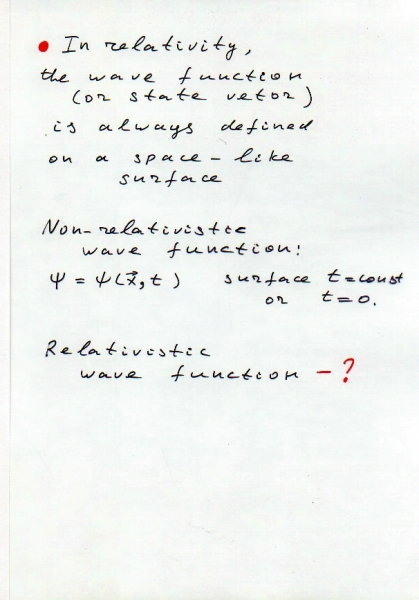 • In relativity,
the wave function
(or state vetor)
is always defined
on a space-like
surface
Non-relativistic
wave function:
ψ = ψ(x⃗, t) surface t=const
or t=0.
Relativistic
wave function - ?